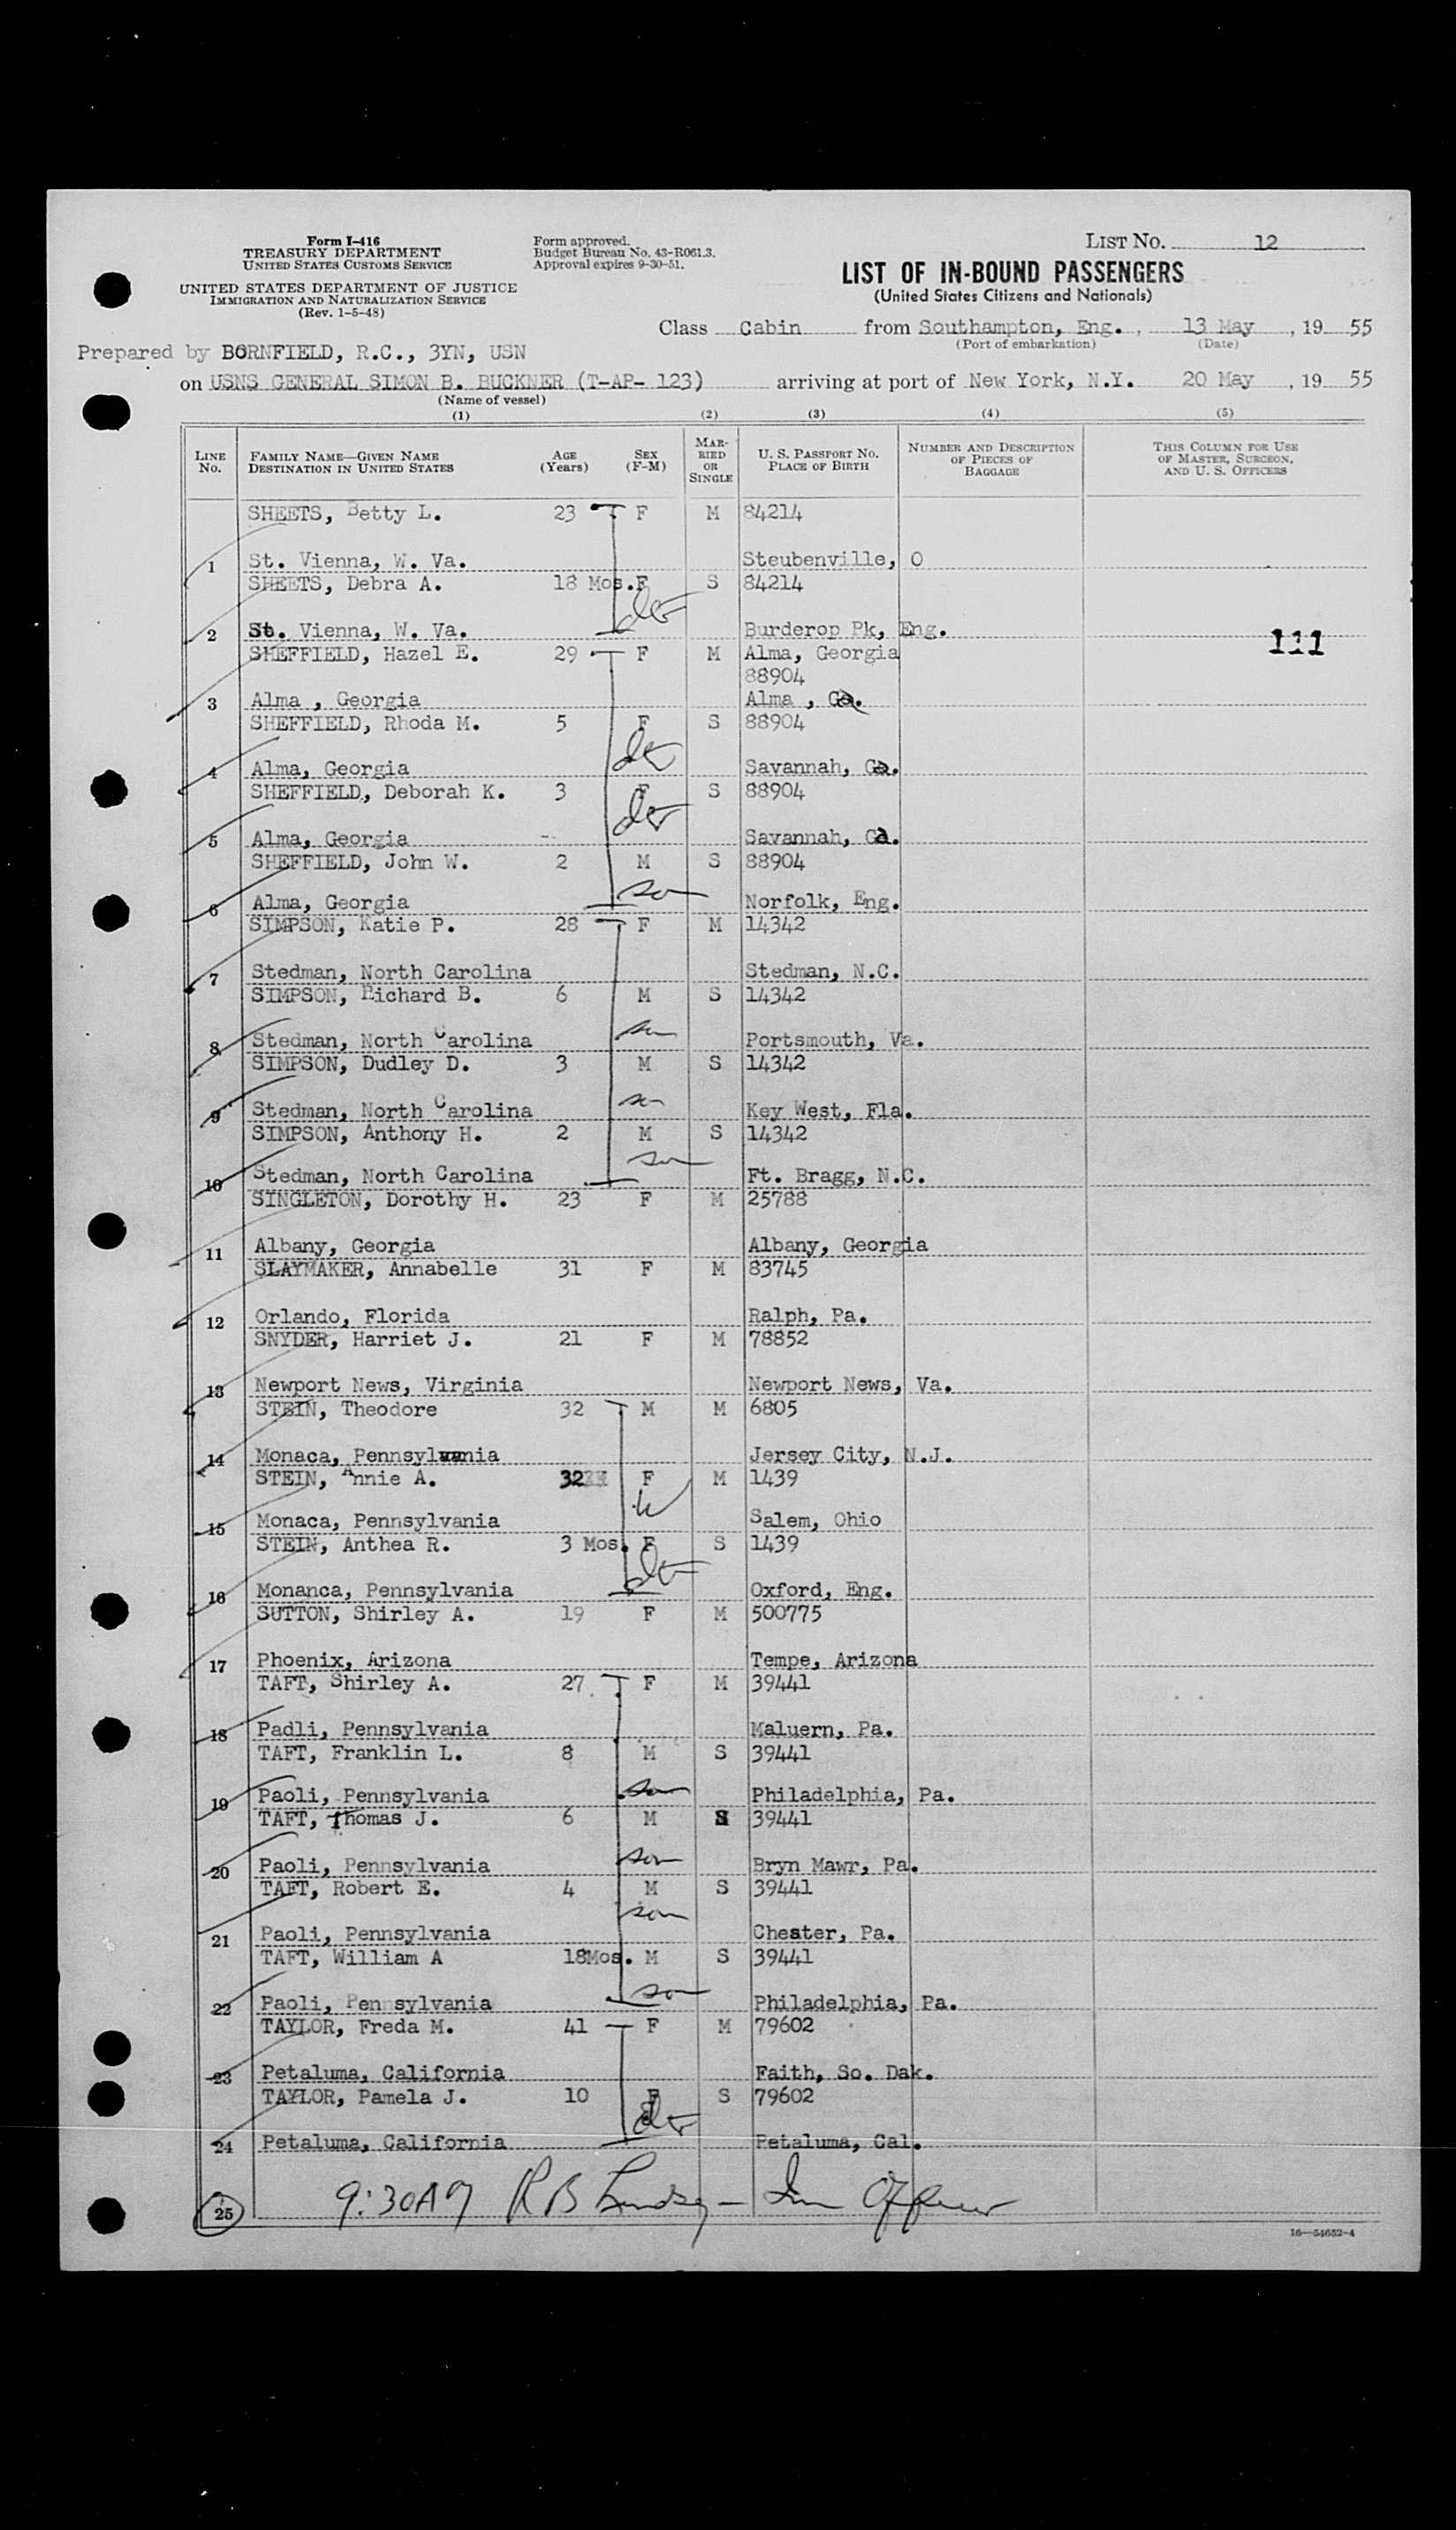 Form I-416
TREASURY DEPARTMENT
UNITED STATES CUSTOMS SERVICE
UNITED STATES DEPARTMENT OF JUSTICE
IMMIGRATION AND NATURALIZATION SERVICE
(Rev. 1-5-48)
Form approved.
Budget Bureau No. 43-R061.3.
Approval expires 9-30-51.
LIST NO. 12
LIST OF IN-BOUND PASSENGERS
(United States Citizens and Nationals)
Class Cabin from Southampton, Eng., 13 May, 19 55
(Port of embarkation) (Date)
Prepared by BORNFIELD, R.C., 3YN, USN
on USNS GENERAL SIMON B. BUCKNER (T-AP- 123) arriving at port of New York, N.Y. 20 May, 19 55
(Name of vessel)
(1) (2) (3) (4) (5)
LINE NO. FAMILY NAME—GIVEN NAME DESTINATION IN UNITED STATES AGE (Years) SEX (F-M) MARRIED OR SINGLE U. S. PASSPORT NO. PLACE OF BIRTH NUMBER AND DESCRIPTION OF PIECES OF BAGGAGE THIS COLUMN FOR USE OF MASTER, SURGEON, AND U. S. OFFICERS
SHEETS, Betty L. 23 F M 84214
1 St. Vienna, W. Va. Steubenville, O
SHEETS, Debra A. 18 Mos. F S 84214
der
2 St. Vienna, W. Va. Burderop Pk, Eng.
111
SHEFFIELD, Hazel E. 29 F M Alma, Georgia
88904
3 Alma , Georgia Alma , Ga.
SHEFFIELD, Rhoda M. 5 F S 88904
der
4 Alma, Georgia Savannah, Ga.
SHEFFIELD, Deborah K. 3 F S 88904
der
5 Alma, Georgia Savannah, Ga.
SHEFFIELD, John W. 2 M S 88904
son
6 Alma, Georgia Norfolk, Eng.
SIMPSON, Katie P. 28 F M 14342
7 Stedman, North Carolina Stedman, N.C.
SIMPSON, Richard B. 6 M S 14342
son
8 Stedman, North Carolina Portsmouth, Va.
SIMPSON, Dudley D. 3 M S 14342
son
9 Stedman, North Carolina Key West, Fla.
SIMPSON, Anthony H. 2 M S 14342
son
10 Stedman, North Carolina Ft. Bragg, N.C.
SINGLETON, Dorothy H. 23 F M 25788
11 Albany, Georgia Albany, Georgia
SLAYMAKER, Annabelle 31 F M 83745
12 Orlando, Florida Ralph, Pa.
SNYDER, Harriet J. 21 F M 78852
13 Newport News, Virginia Newport News, Va.
STEIN, Theodore 32 M M 6805
14 Monaca, Pennsylvania Jersey City, N.J.
STEIN, Annie A. 32 F M 1439
W
15 Monaca, Pennsylvania Salem, Ohio
STEIN, Anthea R. 3 Mos. F S 1439
der
16 Monanca, Pennsylvania Oxford, Eng.
SUTTON, Shirley A. 19 F M 500775
17 Phoenix, Arizona Tempe, Arizona
TAFT, Shirley A. 27 F M 39441
18 Padli, Pennsylvania Maluern, Pa.
TAFT, Franklin L. 8 M S 39441
son
19 Paoli, Pennsylvania Philadelphia, Pa.
TAFT, Thomas J. 6 M S 39441
son
20 Paoli, Pennsylvania Bryn Mawr, Pa.
TAFT, Robert E. 4 M S 39441
son
21 Paoli, Pennsylvania Chester, Pa.
TAFT, William A 18Mos. M S 39441
son
22 Paoli, Pennsylvania Philadelphia, Pa.
TAYLOR, Freda M. 41 F M 79602
23 Petaluma, California Faith, So. Dak.
TAYLOR, Pamela J. 10 F S 79602
der
24 Petaluma, California Petaluma, Cal.
25 9:30A R B Lindsey - Im Officer
16—54652-4